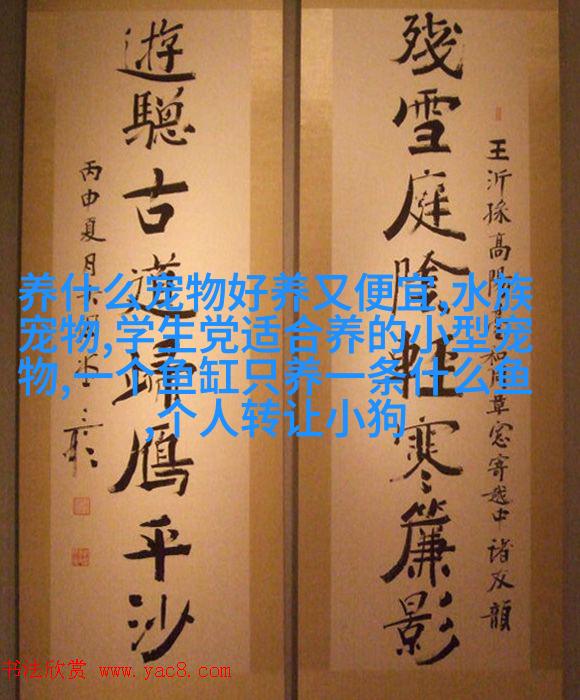 王沂孫高陽臺和周草窓寄越中諸友韻
殘雪庭陰輕寒簾影
遊驄古道歸鴈平沙
丙申夏月
养什么宠物好养又便宜,水族
宠物,学生党适合养的小型宠
物,一个鱼缸只养一条什么鱼
,个人转让小狗
书法欣赏 www.yac8.com